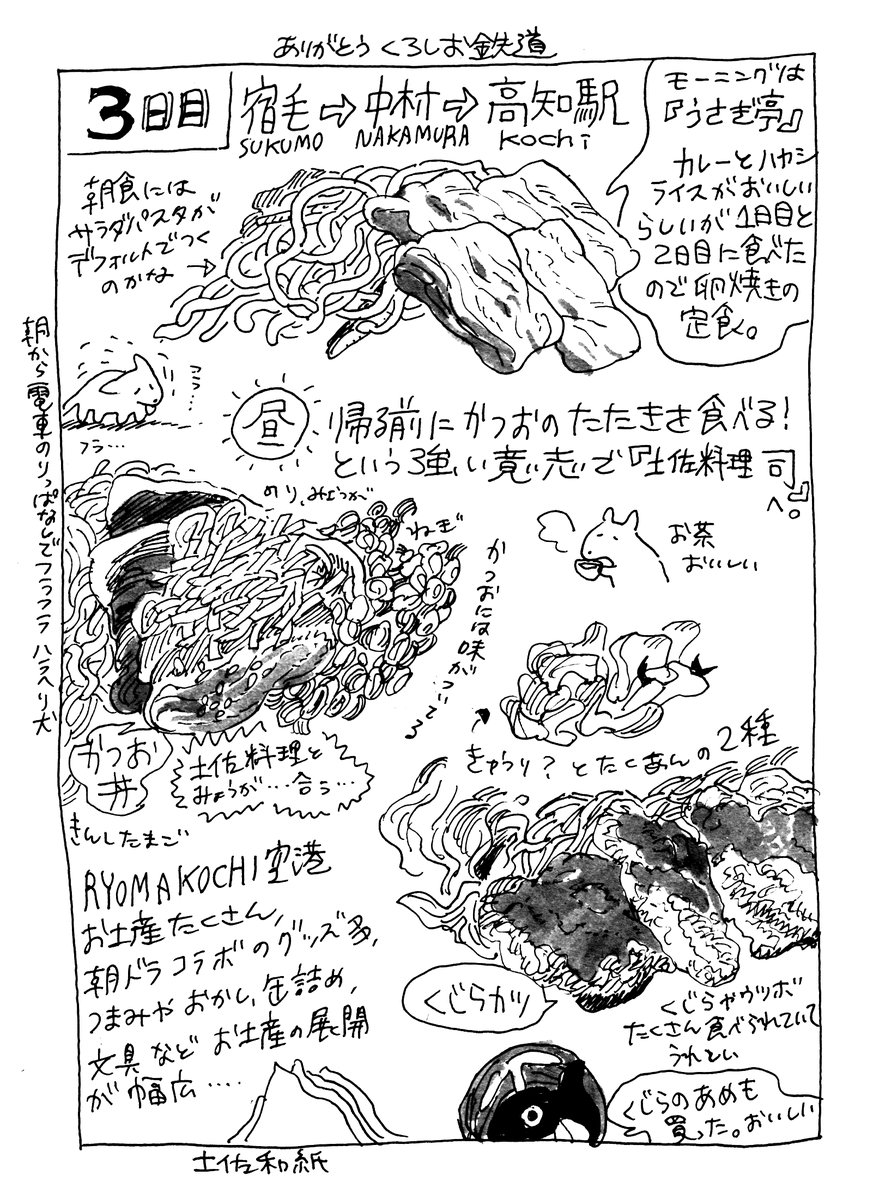 ありがとうくろしお鉄道
3日目
宿毛⇨中村⇨高知駅
SUKUMO NAKAMURA kochi
モーニングは
『うさぎ亭』
カレーとハヤシ
ライスがおいしい
らしいが1日目と
2日目に食べた
ので卵焼きの
定食。
朝食には
サラダパスタが
デフォルトでつく
のかな→
朝から電車のりっぱなしでフラフラ ハラヘリ犬
フラ…
フラ…
昼
帰る前にかつおのたたきを食べる!
という強い意志で『土佐料理 司』
へ。
のり、みょうが
ねぎ
お茶
おいしい
かつおには味がついてる
かつお
丼
土佐料理と
みょうが…合う…
きんしたまご
きゅうり?とたくあんの2種
RYOMA KOCHI空港
お土産たくさん、
朝ドラコラボのグッズ多、
つまみやおかし、缶詰め、
文具などお土産の展開
が幅広….
くじらカツ
くじらやウツボ
たくさん食べられていて
うれしい
くじらのあめも
買った。おいしい
土佐和紙